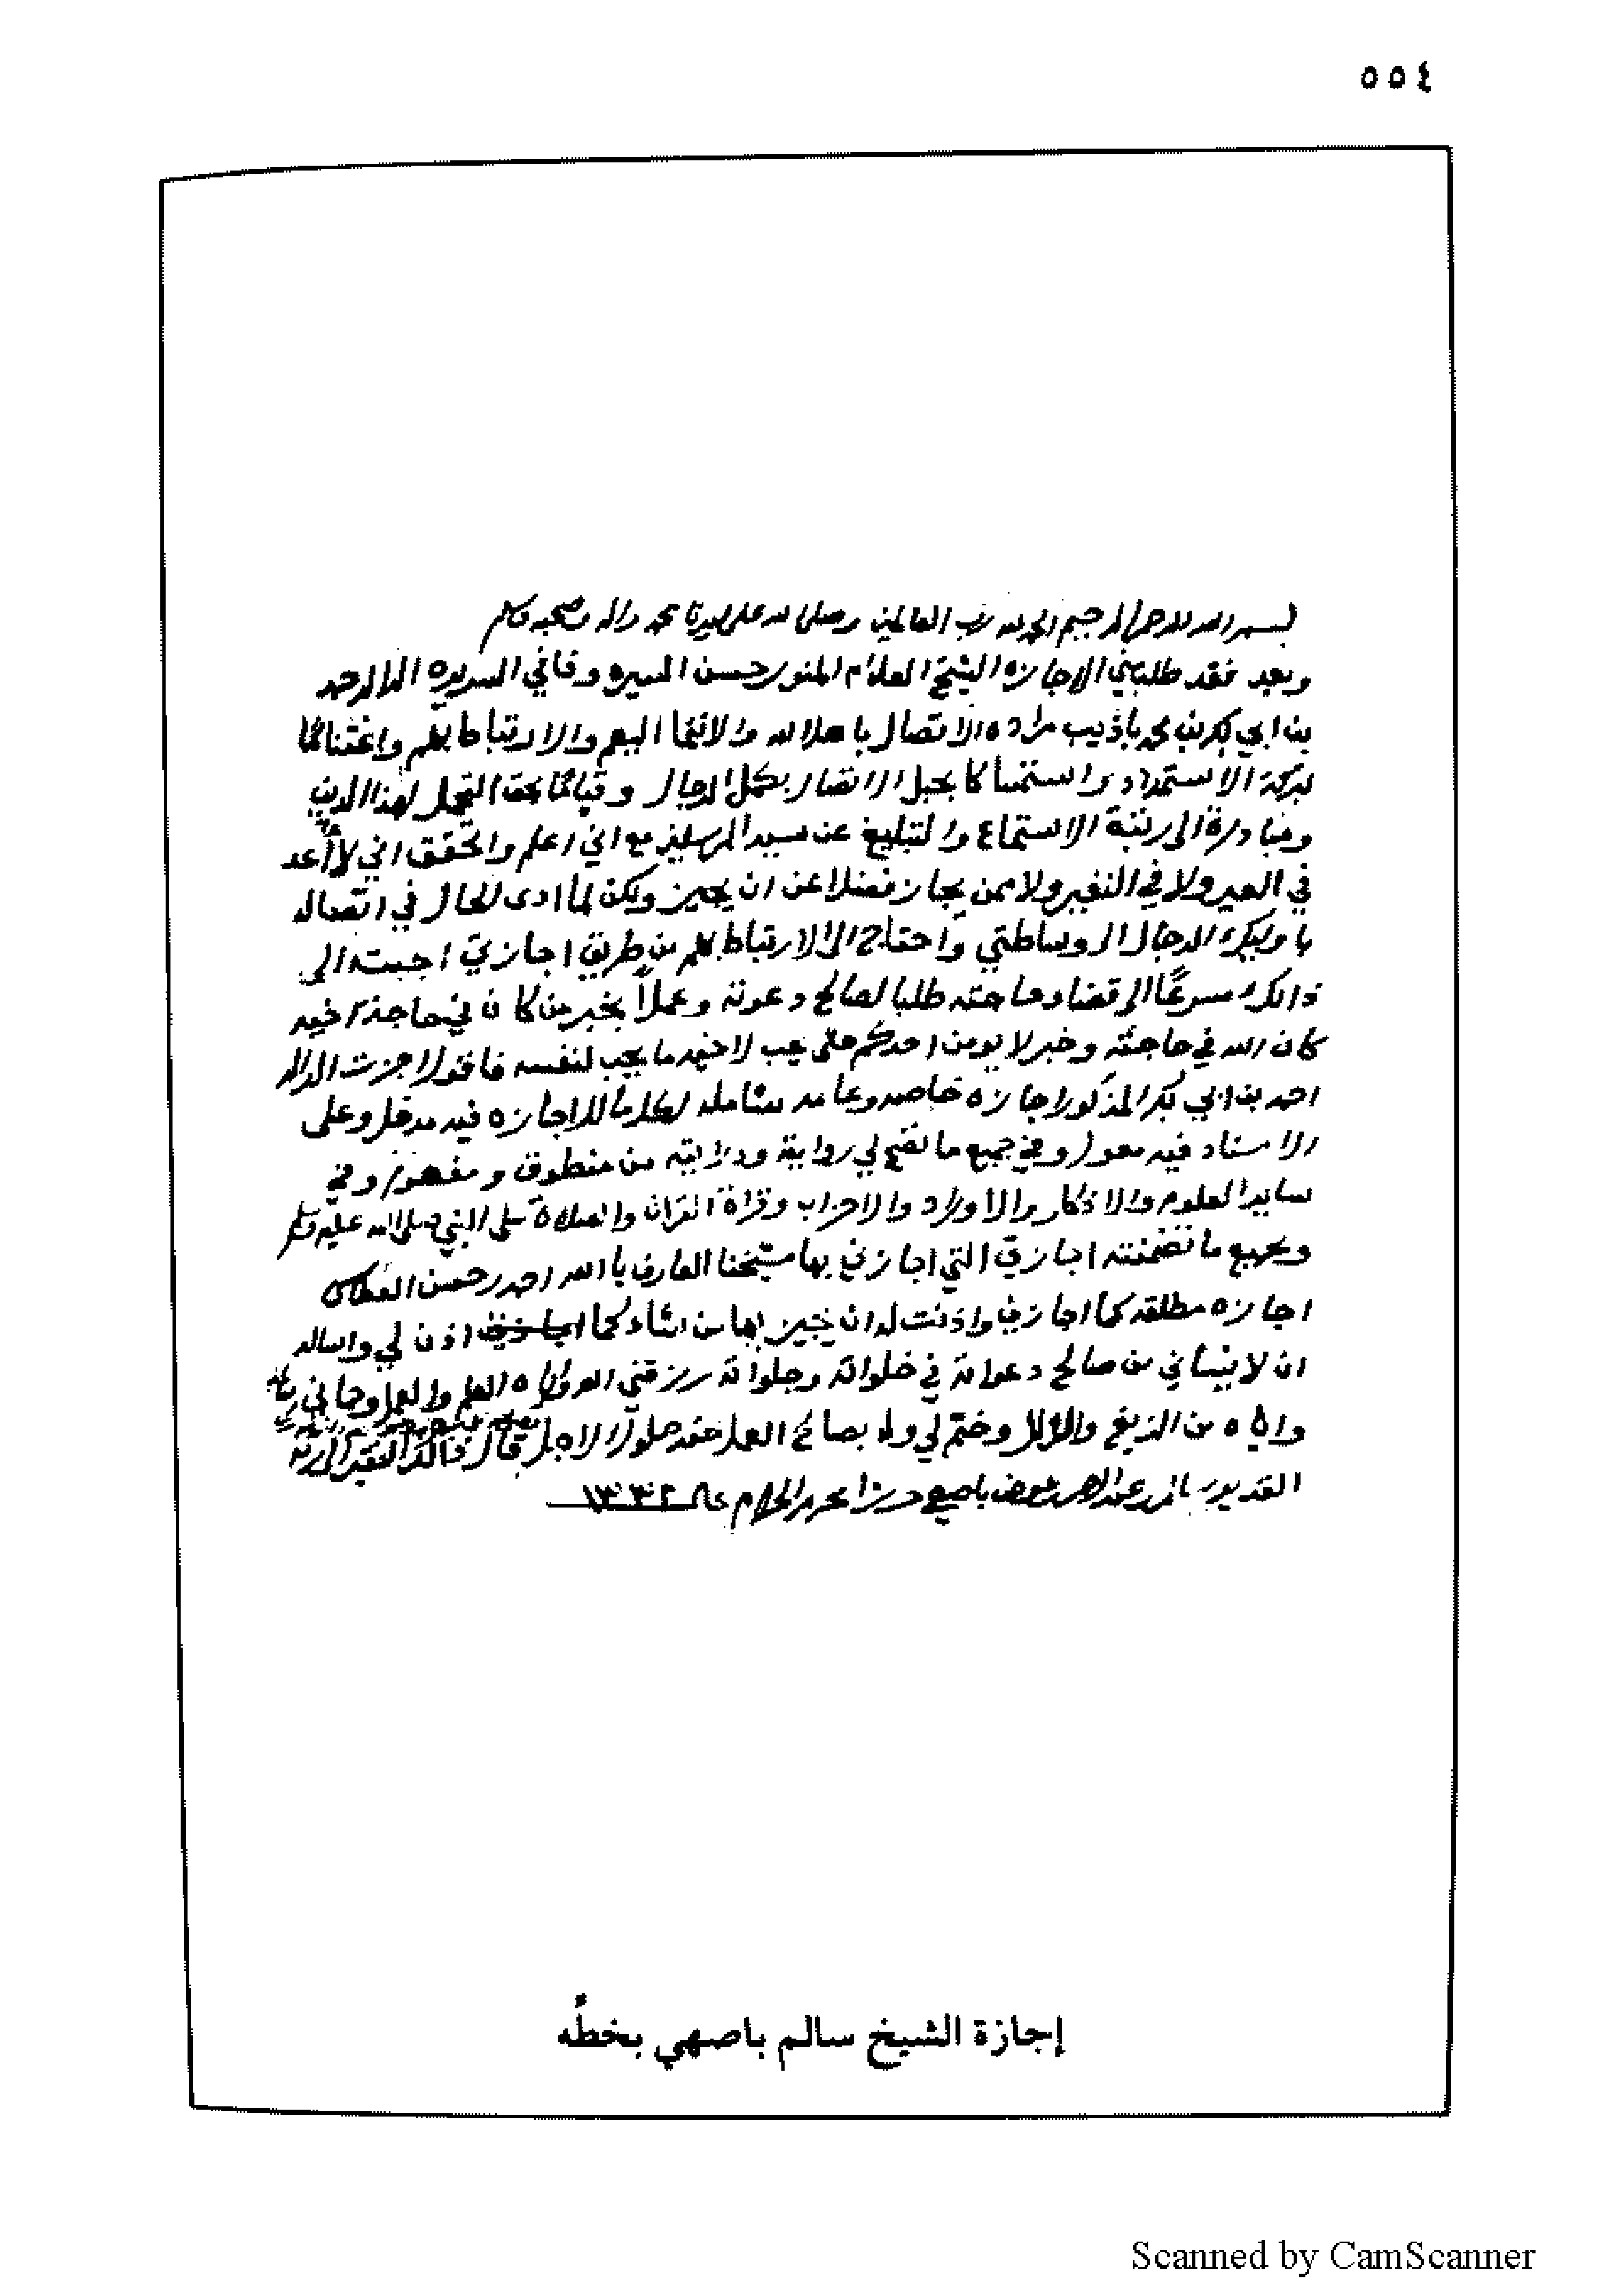 ٥٥٤
بسم الله الرحمن الرحيم الحمد لله رب العالمين وصلى الله على سيدنا محمد واله وصحبه وسلم
وبعد فقد طلب مني الاجازه الشيخ العلام المنور حسن السيره وصافي السريره الداا احمد
بن ابي بكر بن محمد باذيب مراده الاتصال باهل الله والانتما اليهم والارتباط بهم واغتناما
لبركة الاستمداد واستمساكا بحبل الاتصال بكمل الرجال وقياما بحق التحمل لهذا الدين
ومبادرة الى رتبة الاستماع والتبليغ عن سيد المرسلين مع اني اعلم واتحقق اني لا أعد
في العير ولا في النفير ولا ممن يجاز فضلا عن ان يجيز ولكن لما ادى الحال في اتصاله
باوليك الرجال الى وساطتي واحتاج الى الارتباط بهم من طريق اجازتي اجبته الى
ذالك مسرعًا الى قضاء حاجته طلبا لصالح دعوته وعملاً بخبر من كان في حاجة اخيه
كان الله في حاجته وخبر لا يومن احدكم حتى يحب لاخيه ما يحب لنفسه فاقول اجزت الداا
احمد بن ابي بكر المذكور اجازه خاصه وعامه شامله لكل ما للاجازه فيه مدخل وعلى
الاسناد فيه معول وفي جميع ما تصح لي رواية ودراية من منطوق ومفهوم وفي
ساير العلوم والاذكار والاوراد والاحزاب وقراة القران والصلاة على النبي صلى الله عليه وسلم
وبجميع ما تضمنته اجازتي التي اجازني بها شيخنا العارف بالله احمد بن حسن العطاس
اجازه مطلقه كما اجازني واذنت له ان يجيز بها من شاء كما اذن لي واساله
ان لا ينساني من صالح دعواته في خلواته وجلواته رزقني المولى واياه العلم والعمل وحماني
واياه من الزيغ والزلل وختم لي وله بصالح العمل عند حلول الاجل قال ذالك الفقير الى ربه
القدير سالم بن عبدالرحمن بن عوض باصهي محرم الحرام ١٣٣٢
إجازة الشيخ سالم باصهي بخطّه
Scanned by CamScanner